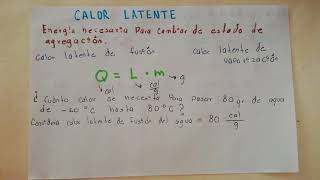 CALOR LATENTE
Energía necesaria para cambiar de estado de
agregación.
calor latente de fusión
calor latente de
vaporización
Q = L · m → g
cal
cal
g
¿ Cuánto calor se necesita para pasar 80 gr. de agua
de -20 °C hasta 80 °C ?
Considera calor latente de fusión del agua = 80 cal/g